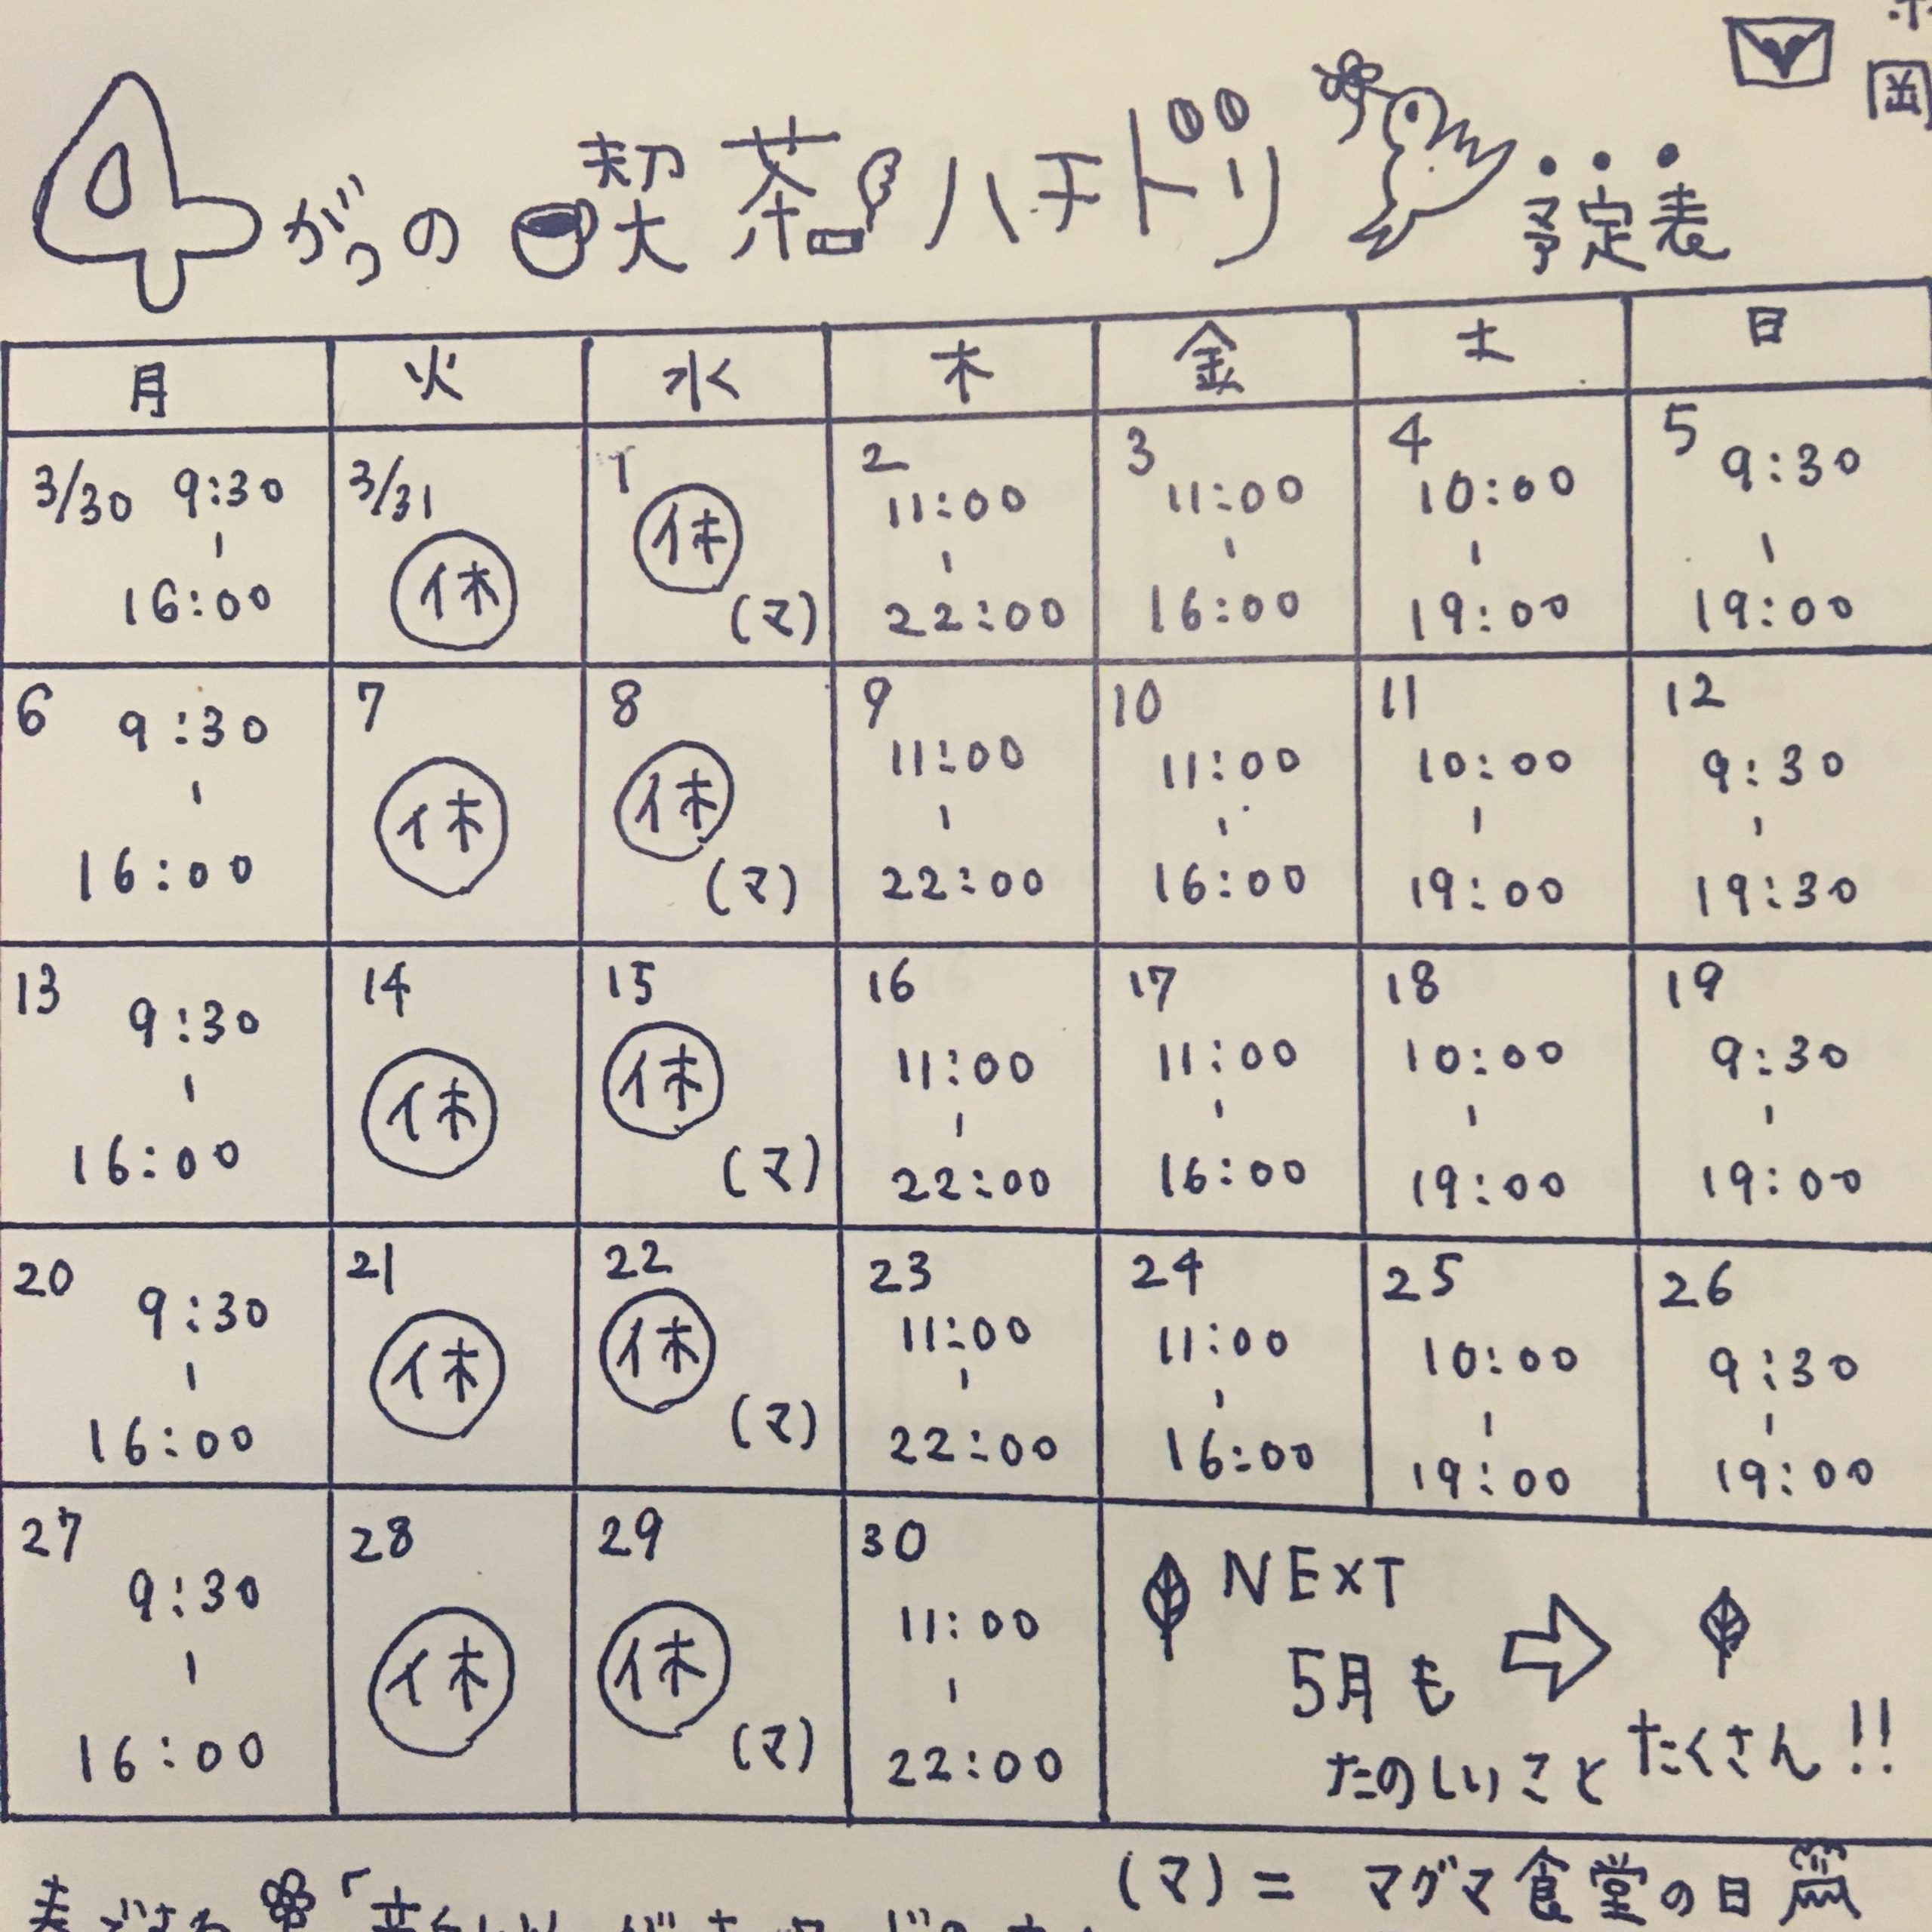 岡
4がつの 喫茶ハチドリ 予定表
月 火 水 木 金 土 日
3/30 9:30 - 16:00
3/31 休
1 休 (マ)
2 11:00 - 22:00
3 11:00 - 16:00
4 10:00 - 19:00
5 9:30 - 19:00
6 9:30 - 16:00
7 休
8 休 (マ)
9 11:00 - 22:00
10 11:00 - 16:00
11 10:00 - 19:00
12 9:30 - 19:30
13 9:30 - 16:00
14 休
15 休 (マ)
16 11:00 - 22:00
17 11:00 - 16:00
18 10:00 - 19:00
19 9:30 - 19:00
20 9:30 - 16:00
21 休
22 休 (マ)
23 11:00 - 22:00
24 11:00 - 16:00
25 10:00 - 19:00
26 9:30 - 19:00
27 9:30 - 16:00
28 休
29 休 (マ)
30 11:00 - 22:00
NEXT
5月も
たのしいこと たくさん!!
(マ)= マグマ食堂の日